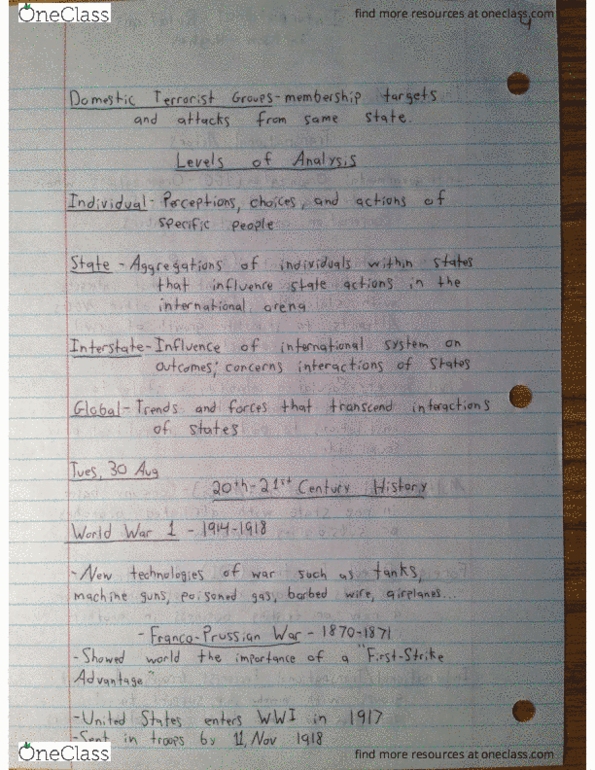 OneClass
find more resources at oneclass.com
4
Domestic Terrorist Groups-membership targets
and attacks from same state.
Levels of Analysis
Individual - Perceptions, choices, and actions of
specific people
State - Aggregations of individuals within states
that influence state actions in the
international arena
Interstate - Influence of international system on
outcomes; concerns interactions of states
Global - Trends and forces that transcend interactions
of states
Tues, 30 Aug
20th-21st Century History
World War 1 - 1914-1918
-New technologies of war such as tanks,
machine guns, poisoned gas, barbed wire, airplanes...
- Franco-Prussian War - 1870-1871
-Showed world the importance of a "First-Strike
Advantage"
-United States enters WWI in 1917
-Sent in troops by 11, Nov 1918
OneClass
find more resources at oneclass.com